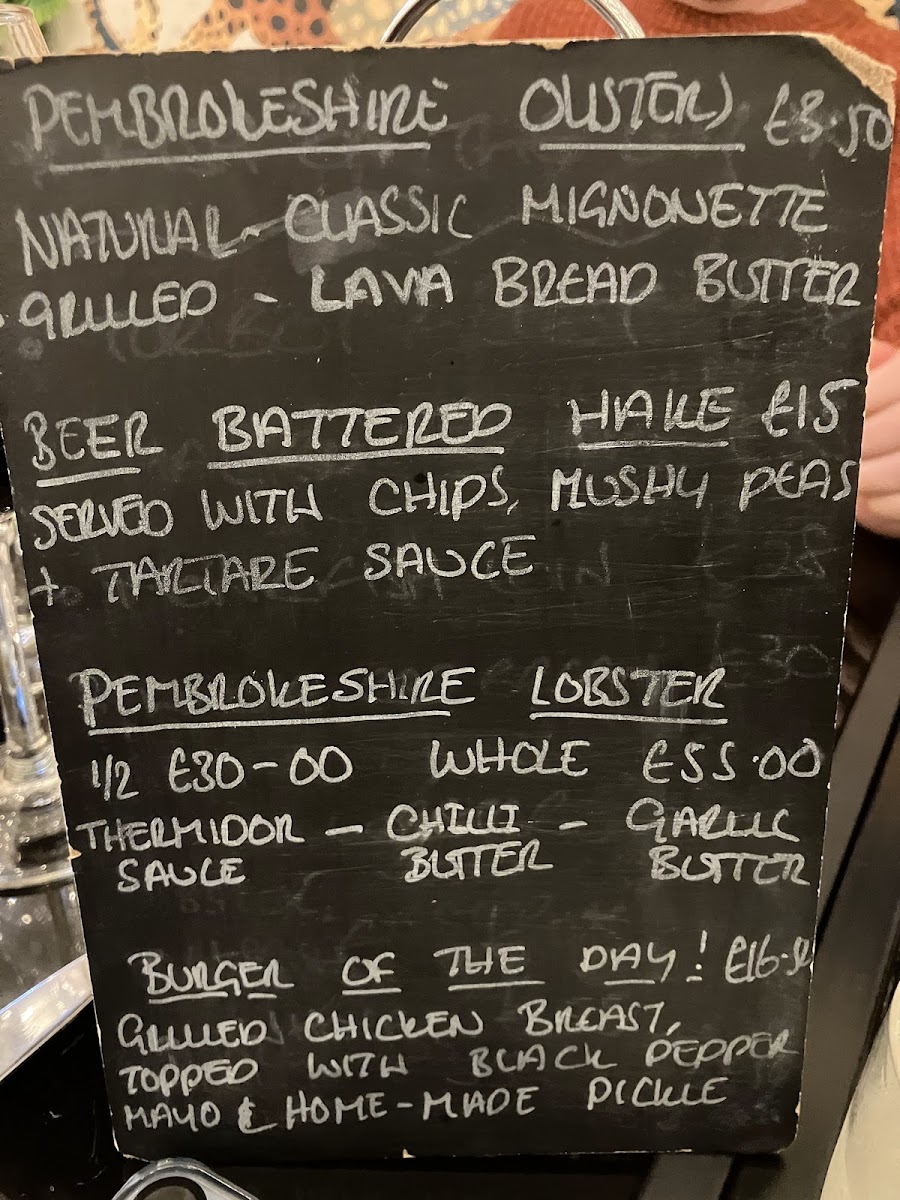 PEMBROKESHIRE OUSTERS £3.50
NATURAL - CLASSIC MIGNONETTE
GRILLED - LAVA BREAD BUTTER
BEER BATTERED HAKE £15
SERVED WITH CHIPS, MUSHY PEAS
+ TARTARE SAUCE
PEMBROKESHIRE LOBSTER
1/2 £30-00 WHOLE £55.00
THERMIDOR - CHILLI - GARLIC
SAUCE BUTTER BUTTER
BURGER OF THE DAY!
GRILLED CHICKEN BREAST,
TOPPED WITH BLACK PEPPER
MAYO & HOME-MADE PICKLE